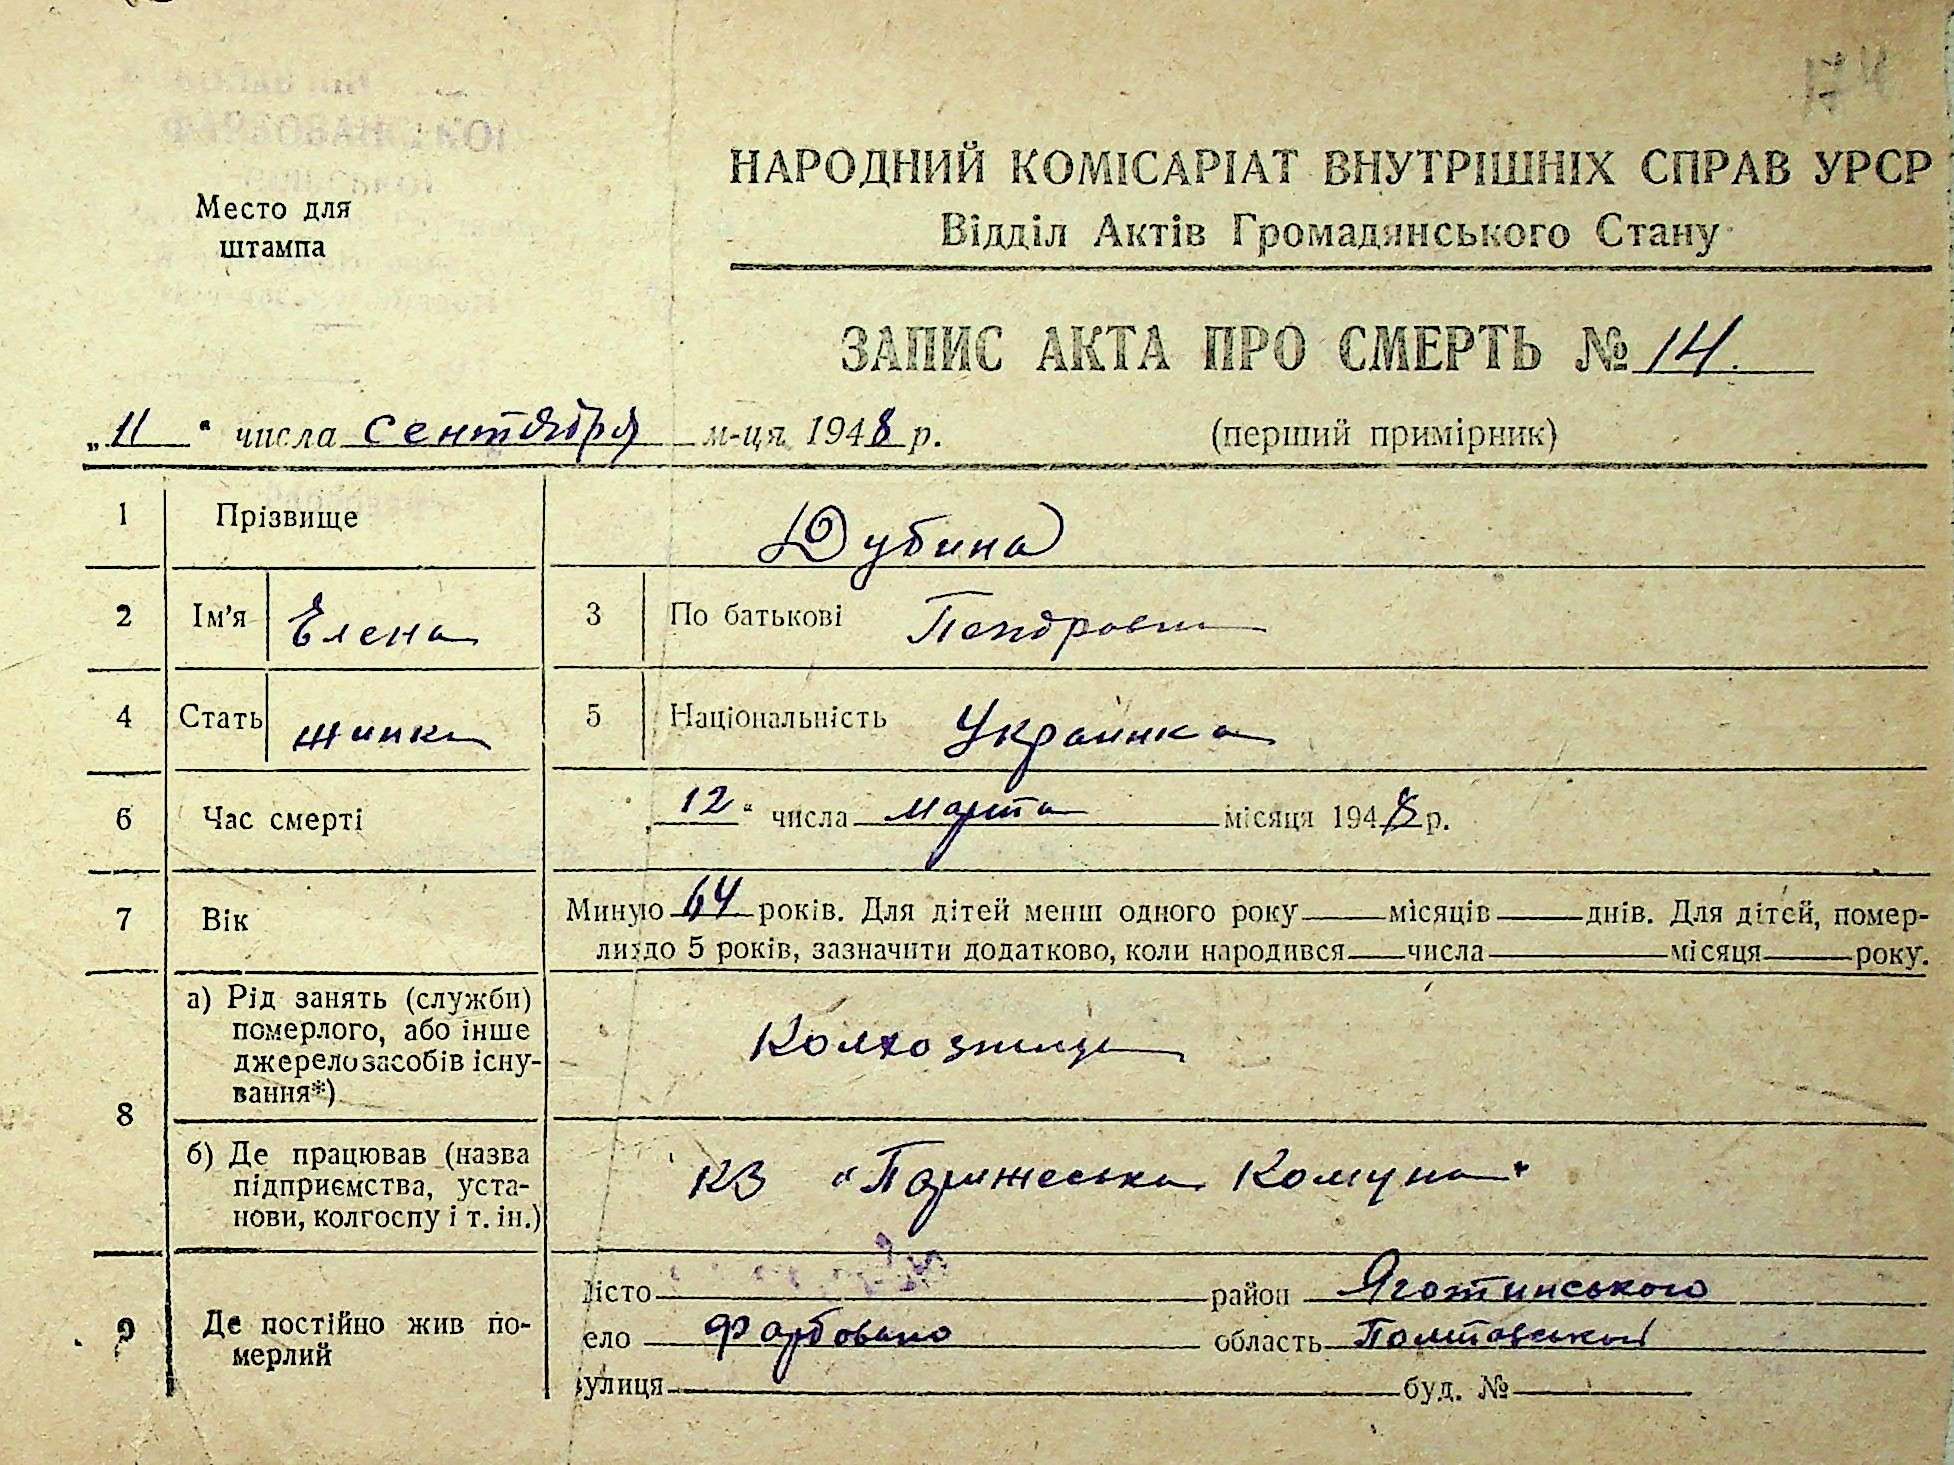 Место для
штампа
НАРОДНИЙ КОМІСАРІАТ ВНУТРІШНІХ СПРАВ УРСР
Відділ Актів Громадянського Стану
ЗАПИС АКТА ПРО СМЕРТЬ № 14.
„11“ числа сентября м-ця 1948 р. (перший примірник)
1 Прізвище Дубина
2 Ім’я Елена 3 По батькові
4 Стать жинка 5 Національність Украинка
6 Час смерті „12“ числа марта місяця 1948 р.
7 Вік Минуло 64 років. Для дітей менш одного року місяців днів. Для дітей, помер-
ли до 5 років, зазначити додатково, коли народився числа місяця року.
8 а) Рід занять (служби)
померлого, або інше
джерело засобів існу-
вання*)
Колхозница
б) Де працював (назва
підприємства, уста-
нови, колгоспу і т. ін.)
КЗ "Парижеська Комуна"
9 Де постійно жив по-
мерлий
місто район Яготинського
село Фарбовано область Полтавської
вулиця буд. №